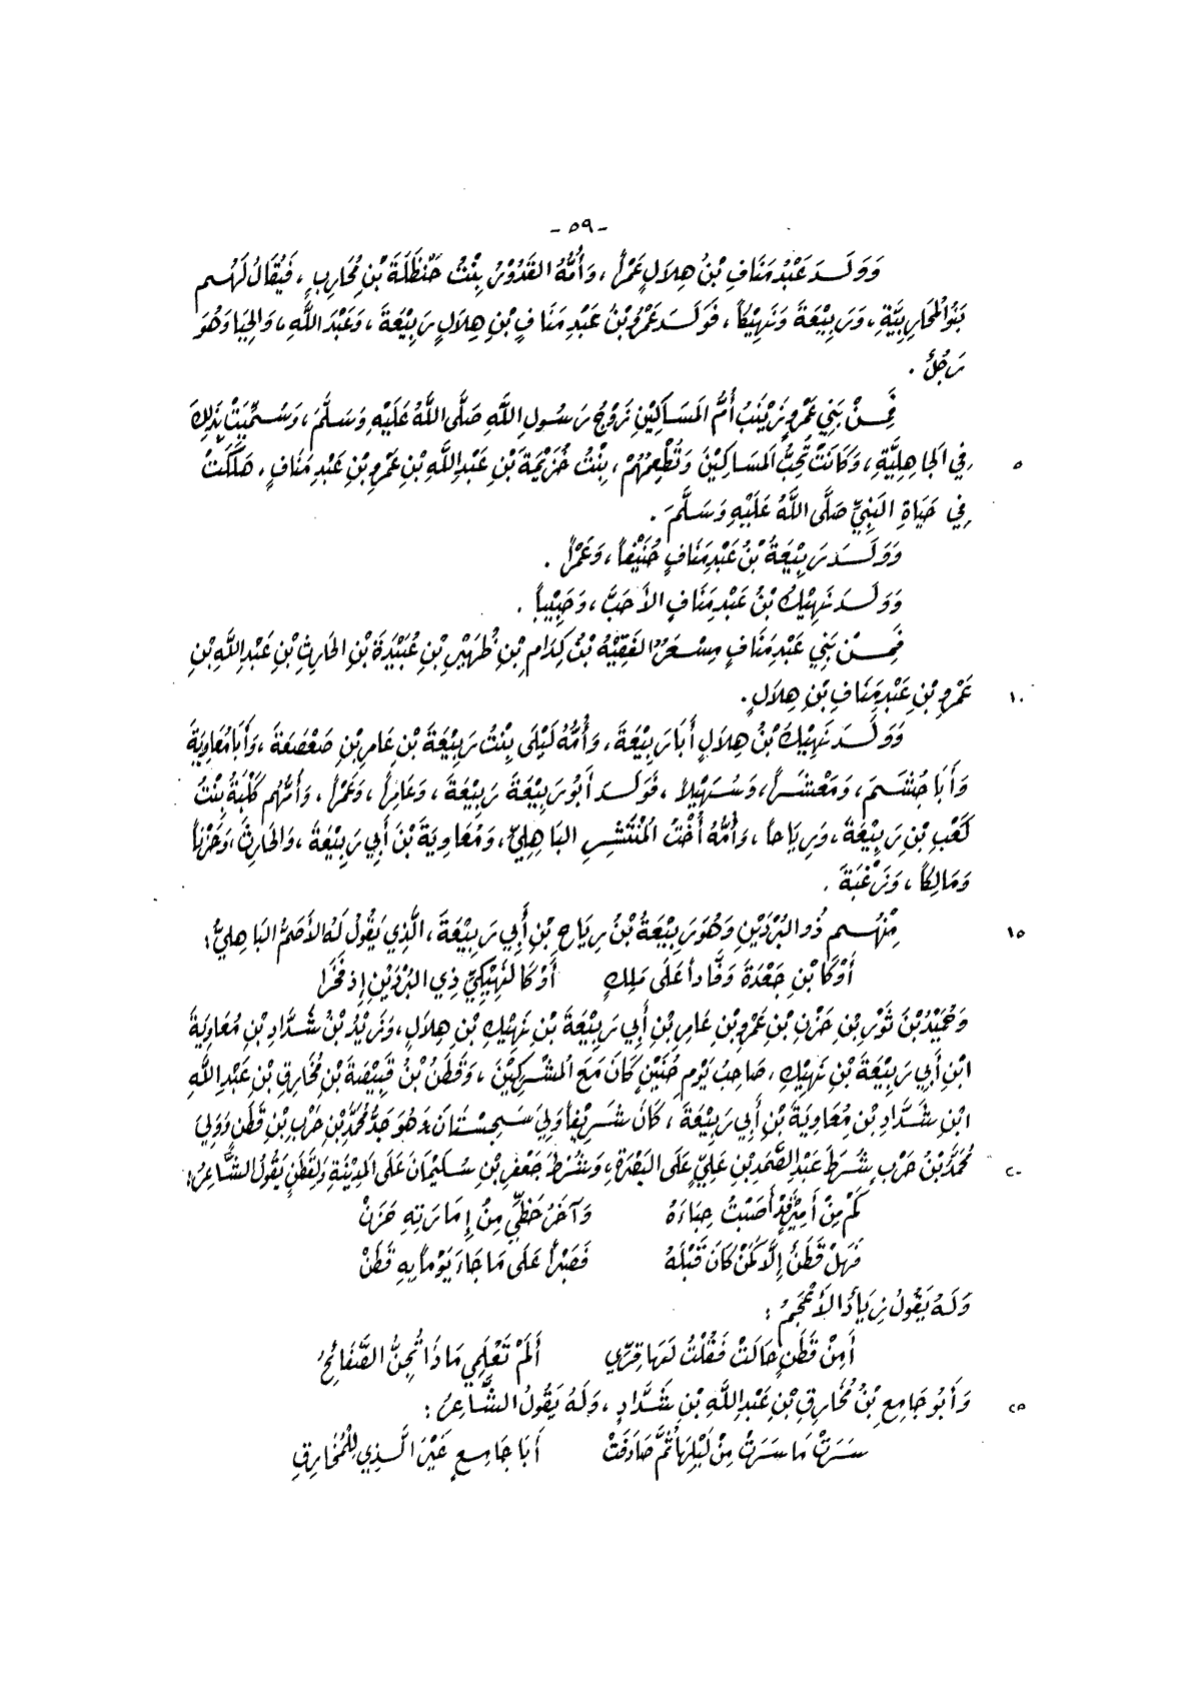 - ٥٩ -
وَوَلَدَ عَبْدُ مَنَافِ بْنُ هِلَالٍ عَمْراً، وَأُمُّهُ القَدُوْرُ بِنْتُ حَنْظَلَةَ بْنِ مُحَارِبٍ، فَيُقَالُ لَهُم
بَنُو المُحَارِبِيَّةِ، وَرَبِيْعَةَ وَنَهِيْكاً، فَوَلَدَ عَمْرُو بْنُ عَبْدِ مَنَافِ بْنِ هِلَالٍ رَبِيْعَةَ، وَعَبْدَ اللَّهِ، وَالحَيَا وَهُوَ
رَجُلٌ .
فَمِنْ بَنِي عَمْرٍو زَيْنَبُ أُمُّ المَسَاكِيْنِ زَوْجُ رَسُولِ اللَّهِ صَلَّى اللَّهُ عَلَيْهِ وَسَلَّمَ، وَسُمِّيَتْ بِذَلِكَ
فِي الجَاهِلِيَّةِ، وَكَانَتْ تُحِبُّ المَسَاكِيْنَ وَتُطْعِمُهُمْ، بِنْتُ خُزَيْمَةَ بْنِ عَبْدِ اللَّهِ بْنِ عَمْرِو بْنِ عَبْدِ مَنَافٍ، هَلَكَتْ ٥
فِي حَيَاةِ النَبِيِّ صَلَّى اللَّهُ عَلَيْهِ وَسَلَّمَ .
وَوَلَدَ رَبِيْعَةُ بْنُ عَبْدِ مَنَافٍ حُنَيْفاً، وَعَمْراً .
وَوَلَدَ نَهِيْكُ بْنُ عَبْدِ مَنَافٍ الأَحَبَّ، وَحَبِيْباً .
فَمِنْ بَنِي عَبْدِ مَنَافٍ مِسْعَرُ الفَقِيْهُ بْنُ كِدَامِ بْنِ ظُهَيْرِ بْنِ عُبَيْدَةَ بْنِ الحَارِثِ بْنِ عَبْدِ اللَّهِ بْنِ
عَمْرِو بْنِ عَبْدِ مَنَافِ بْنِ هِلَالٍ. ١٠
وَوَلَدَ نَهِيْكُ بْنُ هِلَالٍ أَبَا رَبِيْعَةَ، وَأُمُّهُ لَيْلَى بِنْتُ رَبِيْعَةَ بْنِ عَامِرِ بْنِ صَعْصَعَةَ، وَأَبَا مُعَاوِيَةَ
وَأَبَا جُشَمَ، وَمَعْشَراً، وَسُهَيْلاً، فَوَلَدَ أَبُو رَبِيْعَةَ رَبِيْعَةَ، وَعَامِراً، وَعَمْراً، وَأُمُّهُم كَلْبَةُ بِنْتُ
كَعْبِ بْنِ رَبِيْعَةَ، وَرِيَاحاً، وَأُمُّهُ أُخْتُ المُنْتَشِرِ البَاهِلِيِّ، وَمُعَاوِيَةَ بْنَ أَبِي رَبِيْعَةَ، وَالحَارِثَ، وَحَزْناً
وَمَالِكاً، وَزُغْبَةَ .
مِنْهُم ذُو البُرْدَيْنِ وَهُوَ رَبِيْعَةُ بْنُ رِيَاحِ بْنِ أَبِي رَبِيْعَةَ، الَّذِي يَقُولُ لَهُ الأَصَمُّ البَاهِلِيُّ: ١٥
أَوْ كَابْنِ جَعْدَةَ وَفَّاداً عَلَى مَلِكٍ أَوْ كَالنَهِيْكِيِّ ذِي البُرْدَيْنِ إِذْ فَخَرَا
وَحُمَيْدُ بْنُ ثَوْرِ بْنِ حَزْنِ بْنِ عَمْرِو بْنِ عَامِرِ بْنِ أَبِي رَبِيْعَةَ بْنِ نَهِيْكِ بْنِ هِلَالٍ، وَزَيْدُ بْنُ شَدَّادِ بْنِ مُعَاوِيَةَ
ابْنِ أَبِي رَبِيْعَةَ بْنِ نَهِيْكٍ، صَاحِبُ يَوْمِ حُنَيْنٍ كَانَ مَعَ المُشْرِكِيْنَ، وَقَطَنُ بْنُ قَبِيْصَةَ بْنِ مُخَارِقِ بْنِ عَبْدِ اللَّهِ
ابْنِ شَدَّادِ بْنِ مُعَاوِيَةَ بْنِ أَبِي رَبِيْعَةَ، كَانَ شَرِيْفاً وَلِيَ سَجِسْتَانَ وَهُوَ جَدُّ مُحَمَّدِ بْنِ حَرْبِ بْنِ قَطَنٍ وَوَلِيَ
مُحَمَّدُ بْنُ حَرْبٍ شُرَطَ عَبْدِ الصَّمَدِ بْنِ عَلِيٍّ عَلَى البَصْرَةِ، وَشُرَطَ جَعْفَرِ بْنِ سُلَيْمَانَ عَلَى المَدِيْنَةِ وَلِقَطَنٍ يَقُولُ الشَّاعِرُ: ٢٠
كَمْ مِنْ أَمِيْرٍ قَدْ أَصَبْتُ حِبَاءَهُ وَآخَرُ حَظِّي مِنْ إِمَارَتِهِ حَزَنْ
فَهَلْ قَطَنٌ إِلَّا كَمَنْ كَانَ قَبْلَهُ فَصَبْراً عَلَى مَا جَاءَ يَوْماً بِهِ قَطَنْ
وَلَهُ يَقُولُ زِيَادٌ الأَعْجَمُ :
أَمِنْ قَطَنٍ حَالَتْ فَقُلْتُ لَهَا قِرِّي أَلَمْ تَعْلَمِي مَاذَا تُجِنُّ الصَّفَائِحُ
وَأَبُو جَامِعِ بْنُ مُخَارِقِ بْنِ عَبْدِ اللَّهِ بْنِ شَدَّادٍ، وَلَهُ يَقُولُ الشَّاعِرُ : ٢٥
سَرَتْ مَا سَرَتْ مِنْ لَيْلِهَا ثُمَّ صَادَفَتْ أَبَا جَامِعٍ غَيْرَ الَّذِي لِلْمُخَارِقِ